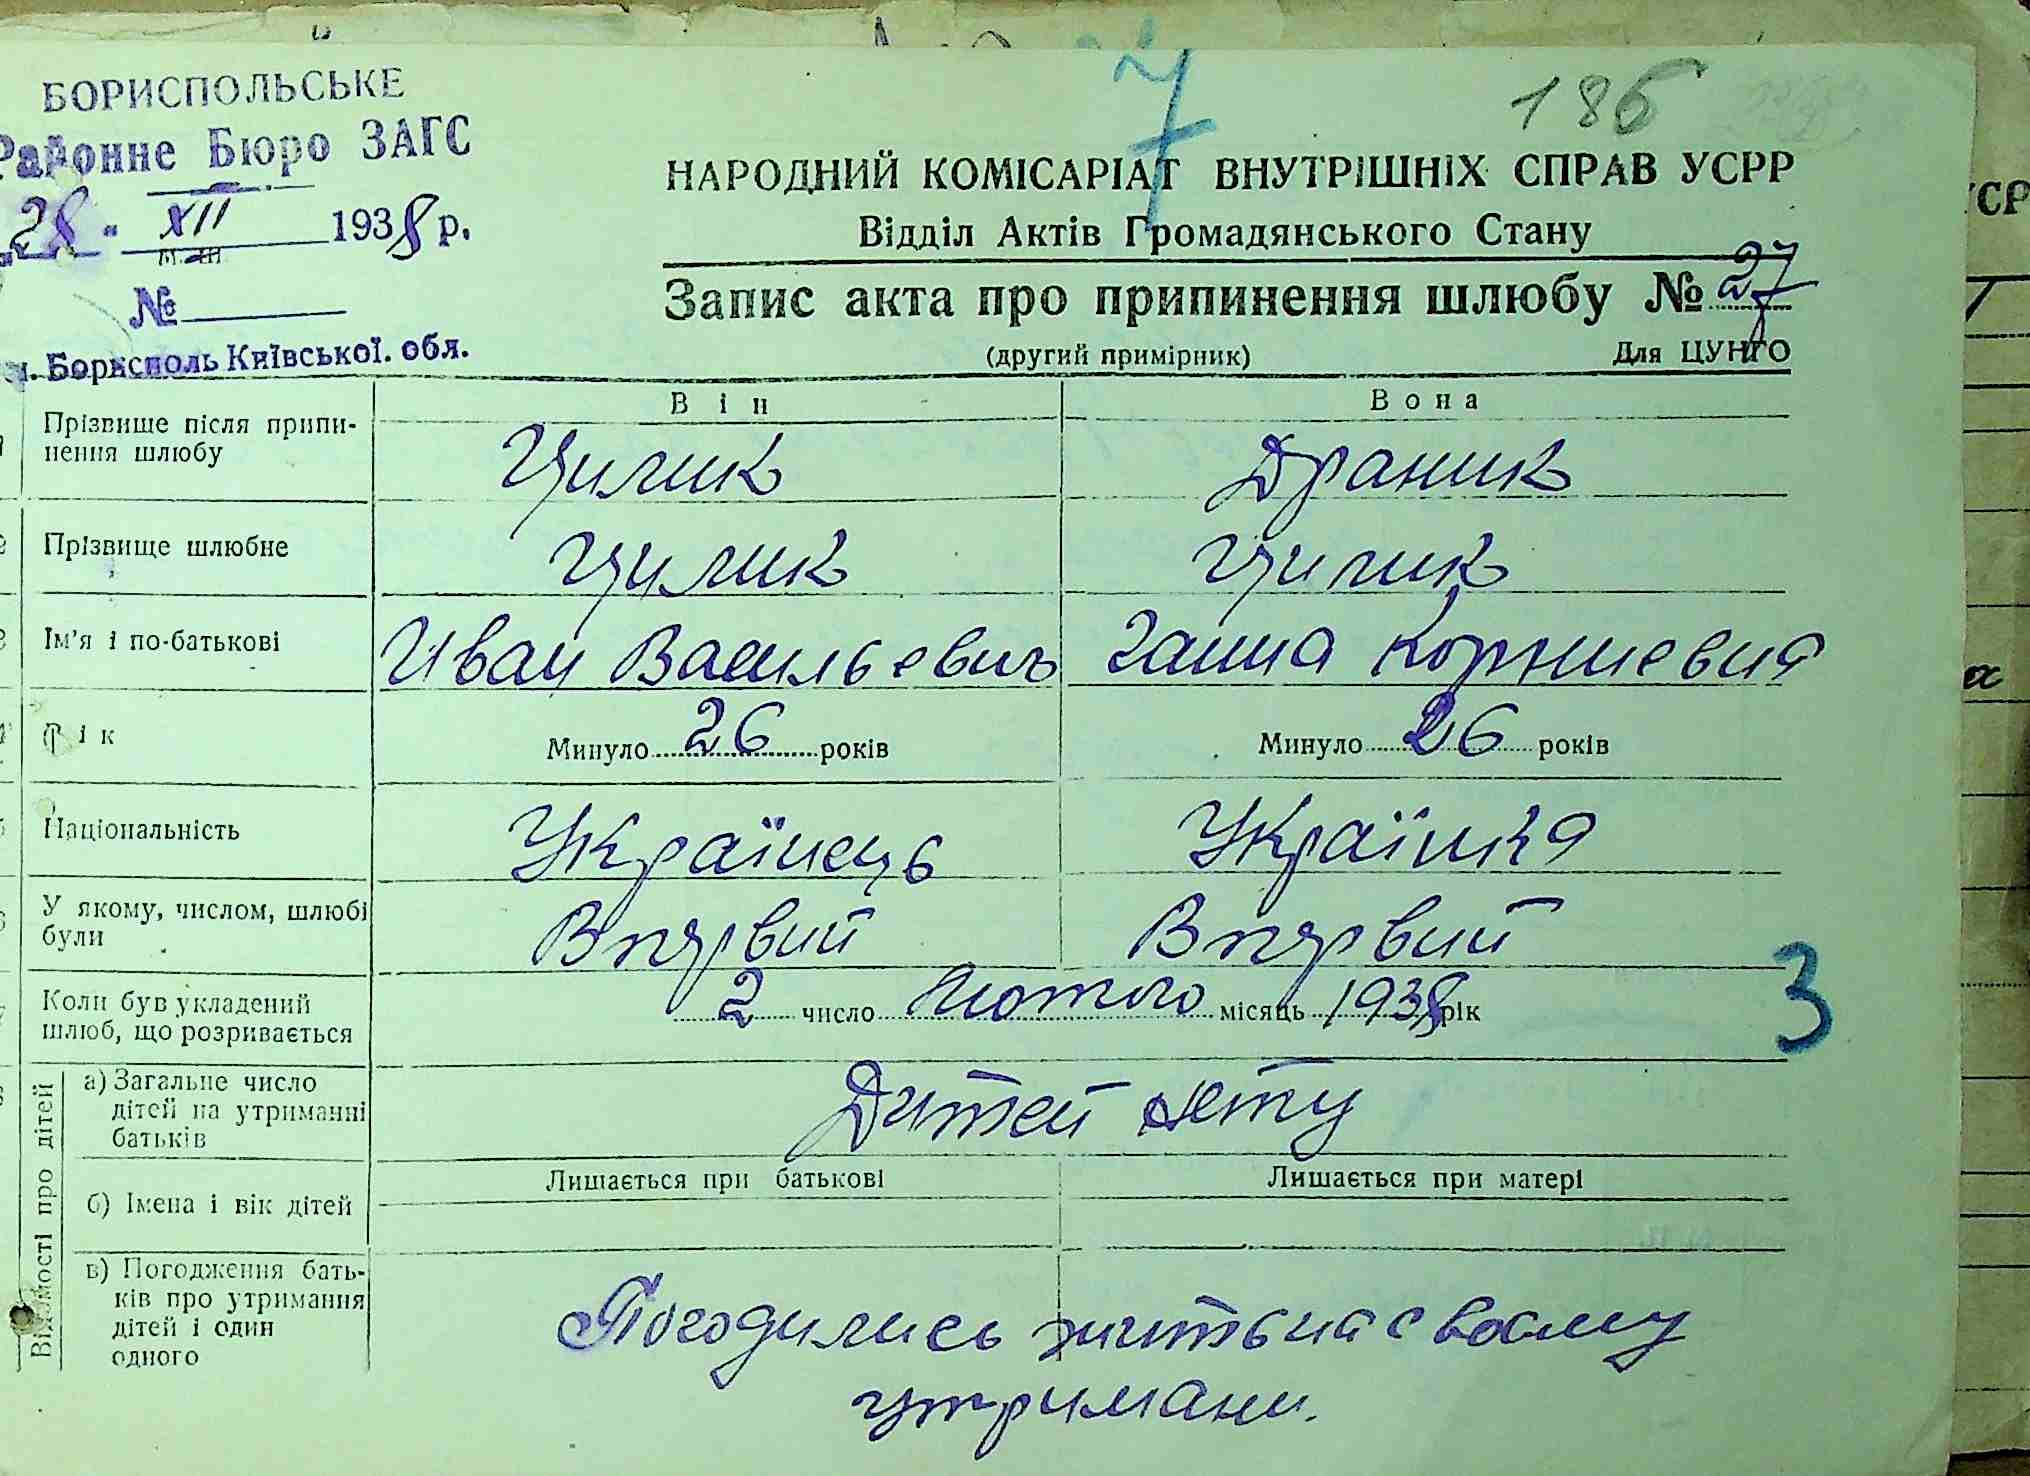 7
186
БОРИСПОЛЬСЬКЕ
Районне Бюро ЗАГС
28 XII 1938 р.
№
м. Бориспіль Київської. обл.
НАРОДНИЙ КОМІСАРІАТ ВНУТРІШНІХ СПРАВ УСРР
Відділ Актів Громадянського Стану
Запис акта про припинення шлюбу № 27
(другий примірник) Для ЦУНГО
Він Вона
Прізвище після припи-
нення шлюбу
Цилик Драник
Прізвище шлюбне Цилик Цилик
Ім'я і по-батькові Иван Васильевичь Ганна Корниевня
Вік Минуло 26 років Минуло 26 років
Національність Українець Українка
У якому, числом, шлюбі
були
Впярвий Впярвий
Коли був укладений
шлюб, що розривається
2 число Лютого місяць 1938 рік
3
Відомості про дітей
а) Загальне число
дітей на утриманні
батьків
Дитей нету
Лишається при батькові Лишається при матері
б) Імена і вік дітей
в) Погодження бать-
ків про утримання
дітей і один
одного
Погодились жить на своему
утримани.